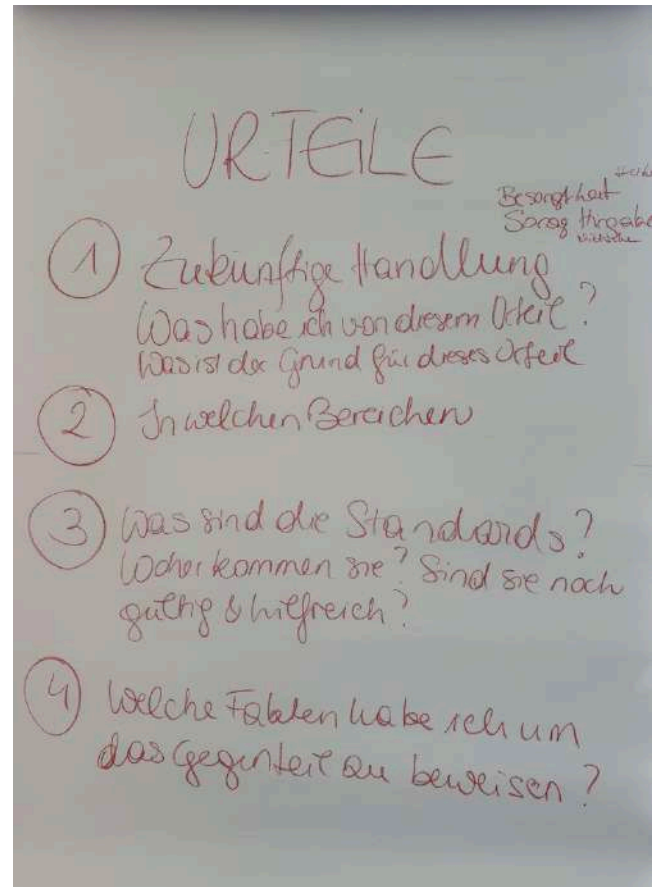 URTEILE
Besorgtheit
Sorag Hingabe
① Zukünftige Handlung
Was habe ich von diesem Urteil?
Was ist der Grund für dieses Urteil
② In welchen Bereichen
③ Was sind die Standards?
Woher kommen sie? Sind sie noch
gültig & hilfreich?
④ Welche Fakten habe ich um
das Gegenteil zu beweisen?